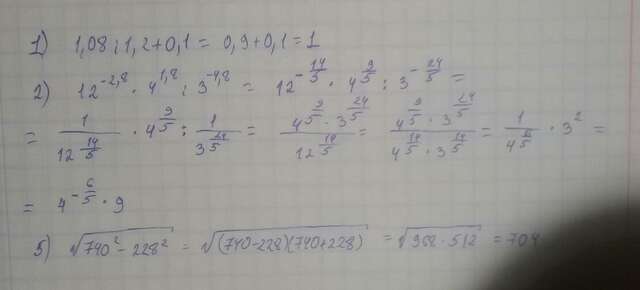 1) 1,08 : 1,2 + 0,1 = 0,9 + 0,1 = 1
2) 12^{-2,8} · 4^{1,8} : 3^{-4,8} = 12^{-\frac{14}{5}} · 4^{\frac{9}{5}} : 3^{-\frac{24}{5}} =
= \frac{1}{12^{\frac{14}{5}}} · 4^{\frac{9}{5}} : \frac{1}{3^{\frac{24}{5}}} = \frac{4^{\frac{9}{5}} · 3^{\frac{24}{5}}}{12^{\frac{14}{5}}} = \frac{4^{\frac{9}{5}} · 3^{\frac{24}{5}}}{4^{\frac{14}{5}} · 3^{\frac{14}{5}}} = \frac{1}{4} · 3^2 =
= 4^{-\frac{6}{5}} · 9
5) \sqrt{740^2 - 228^2} = \sqrt{(740-228)(740+228)} = \sqrt{968 · 512} = 704